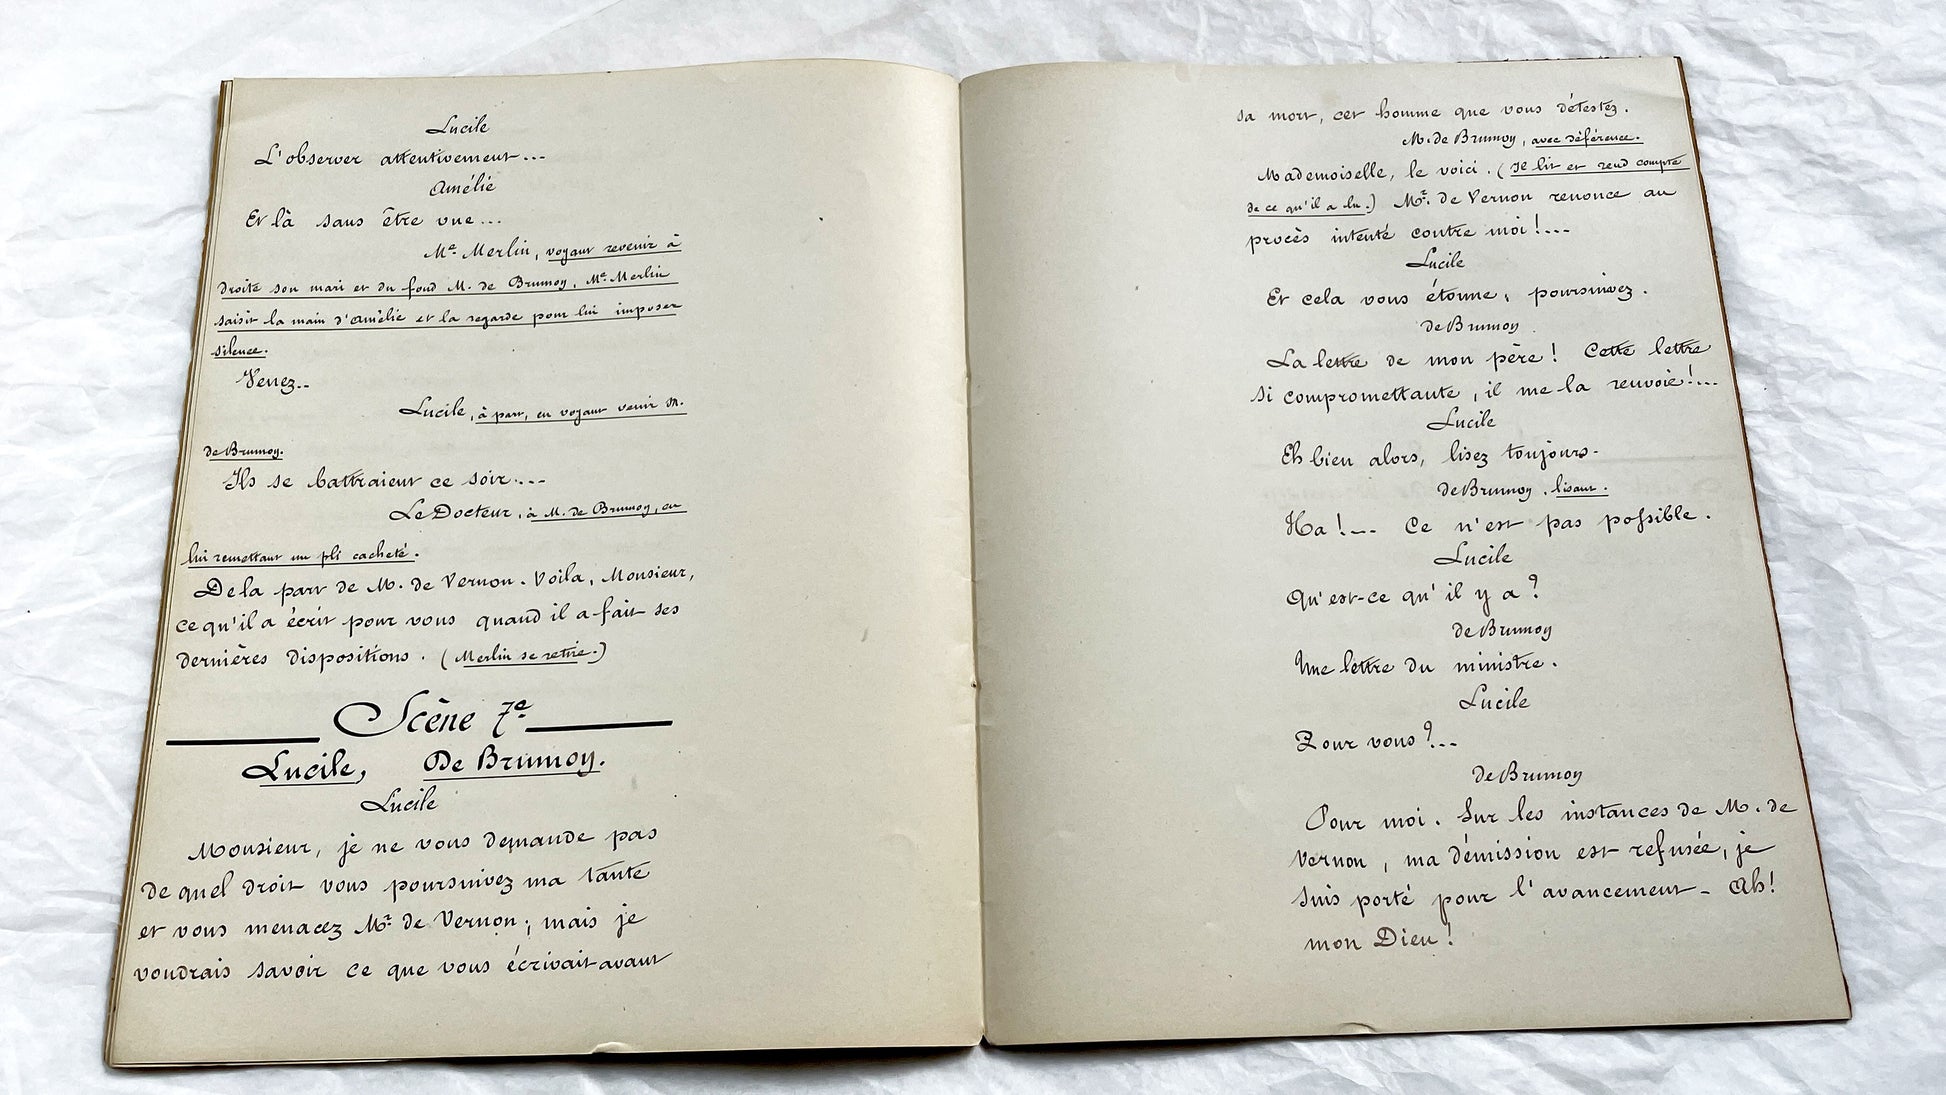 Lucile
L'observer attentivement...
Amélie
Et là sans être vue...
Me. Merlin, voyant revenir à
droite son mari et du fond M. de Brunoy, Me. Merlin
saisit la main d'Amélie et la regarde pour lui imposer
silence.
Venez..
Lucile, à part, en voyant venir M.
de Brunoy.
Ils se battraient ce soir....
Le Docteur, à M. de Brunoy, en
lui remettant un pli cacheté.
De la part de M. de Vernon. Voila, Monsieur,
ce qu'il a écrit pour vous quand il a fait ses
dernières dispositions. (Merlin se retire.)
Scène 7e.
Lucile, De Brunoy.
Lucile
Monsieur, je ne vous demande pas
de quel droit vous poursuivez ma tante
et vous menacez Mr. de Vernon; mais je
voudrais savoir ce que vous écrivait avant
sa mort, cet homme que vous détestez.
M. de Brunoy, avec déférence.
Mademoiselle, le voici. (Il lit et rend compte
de ce qu'il a lu.) Mr. de Vernon renonce au
procès intenté contre moi!...
Lucile
Et cela vous étonne, poursuivez.
de Brunoy
La lettre de mon père! Cette lettre
si compromettante, il me la renvoie!...
Lucile
Eh bien alors, lisez toujours.
de Brunoy, lisant.
Ha!... Ce n'est pas possible.
Lucile
Qu'est-ce qu'il y a?
de Brunoy
Une lettre du ministre.
Lucile
Pour vous?...
de Brunoy
Pour moi. Sur les instances de M. de
Vernon, ma démission est refusée, je
suis porté pour l'avancement - Ah!
mon Dieu!